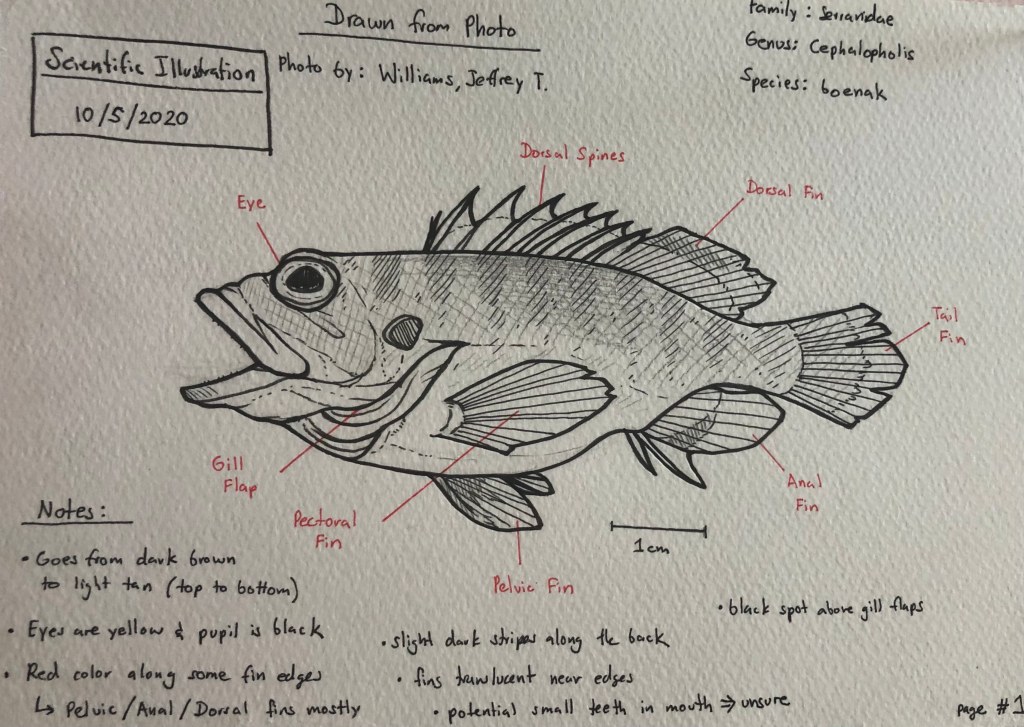 Drawn from Photo
Scientific Illustration
10/5/2020
Photo by: Williams, Jeffrey T.
Family: Serranidae
Genus: Cephalopholis
Species: boenak
Dorsal Spines
Eye
Dorsal Fin
Tail
Fin
Gill
Flap
Pectoral
Fin
Pelvic Fin
Anal
Fin
1cm
Notes:
• Goes from dark brown
to light tan (top to bottom)
• Eyes are yellow & pupil is black
• Red color along some fin edges
↳ Pelvic/Anal/Dorsal fins mostly
• slight dark stripes along the back
• fins translucent near edges
• potential small teeth in mouth ⇒ unsure
• black spot above gill flaps
page #1